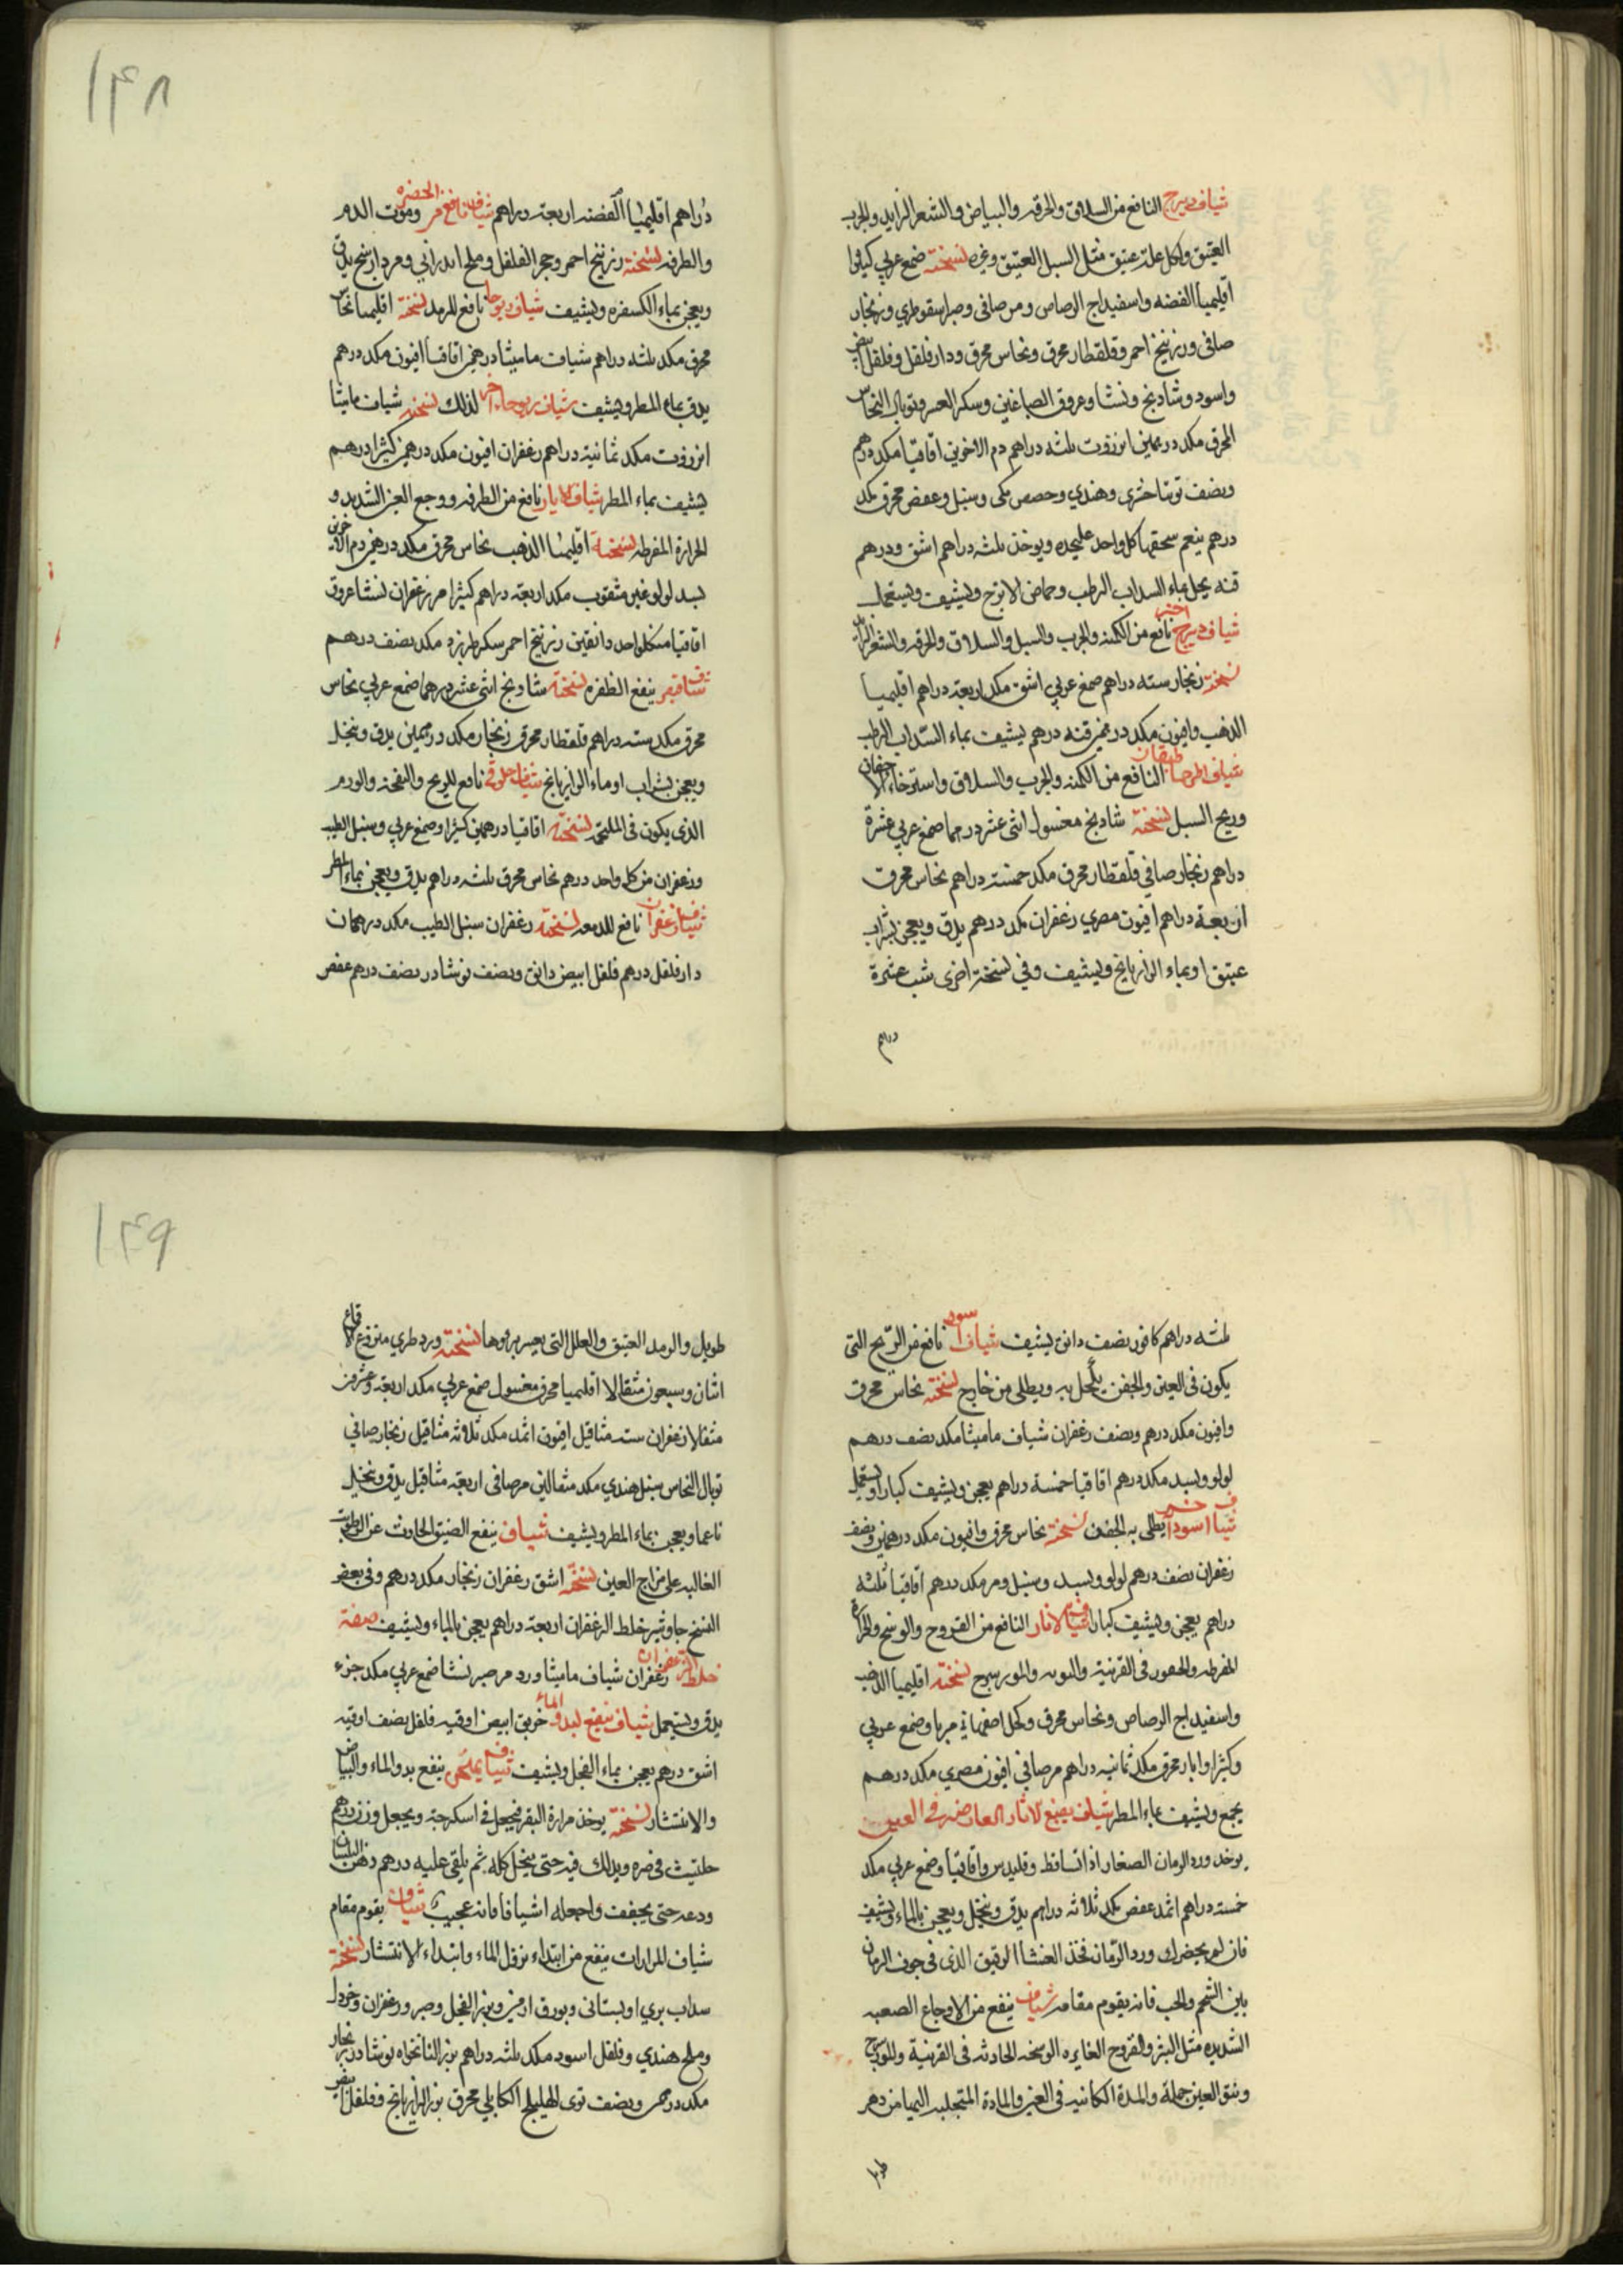 شياف ديزج النافع من السلاق والحرقه والبياض والشعر الزايد والجرب
العتيق ولكل علة عتيق مثل السبل العتيق وغيره نسخته صمغ عربي كثيرا
اقليميا الفضه واسفيداج الرصاص ومر صافى وصبر اسقوطري وزنجار
صافى وزرنيخ احمر وقلقطار محرق ونحاس محرق ودار فلفل وفلفل ابيض
واسود وشادنج ونشا وعروق الصباغين وسكر العشر وتوبال النحاس
المحرق مكد درهمين انزروت ثلثه دراهم دم الاخوين اقاقيا مكد درهم
ونصف توتيا حشرى وهندي وحضض مكى وسنبل وعفص محرق مكد
درهم ينعم سحقها كل واحد عليحده ويوخذ ثلثه دراهم اشق ودرهم
قنه يحل بماء السداب الرطب وحماض الاترج ويشيف ويستعمل
شياف ديزج اخر نافع من الكمنه والجرب والسبل والسلاق والحرقه والشعر الزايد
نسخته زنجار سته دراهم صمغ عربي اشق مكد اربعة دراهم اقليميا
الذهب وافيون مكد درهمين قنه درهم يشيف بماء السداب الرطب
شياف طرخماطيقان النافع من الكمنه والجرب والسلاق واسترخاء الاجفان
وريح السبل نسخته شادنج مغسول اثنى عشر درهما صمغ عربي عشرة
دراهم زنجار صافي قلقطار محرق مكد خمسة دراهم نحاس محرق
اربعة دراهم افيون مصري زعفران مكد درهم يدق ويعجن بشراب
عتيق او بماء الرازيانج ويشيف وفي نسخة اخرى شب عشرة
دراهم
١٤٨
دراهم اقليميا الفضه اربعة دراهم شياف نافع من الحضره وموت الدم
والطرفه نسخته زرنيخ احمر وحجر الفلفل وملح اندراني ومرداسنج يدق
ويعجن بماء الكسفره ويشيف شياف ريوحا نافع للرمد نسخته اقليميا نحاس
محرق مكد ثلثه دراهم شياف ماميثا درهمين اقاقيا افيون مكد درهم
يدق بماء المطر ويشيف شياف ريوحا اخر لذلك نسخته شياف ماميثا
انزروت مكد ثمانية دراهم زعفران افيون مكد درهمين كثيرا درهم
يشيف بماء المطر شياف الابار نافع من الطرفه ووجع العين الشديد و
الحرارة المفرطه نسخته اقليميا الذهب نحاس محرق مكد درهمين دم الاخوين
بسد لولو غير مثقوب مكد اربعة دراهم كثيرا مر زعفران نشا عروق
اقاقيا من كل واحد دانقين زرنيخ احمر سكر طبرزد مكد نصف درهم
شياف قيصر ينفع الظفره نسخته شادنج اثنى عشر درهما صمغ عربي نحاس
محرق مكد سته دراهم قلقطار محرق زنجار مكد درهمين يدق وينخل
ويعجن بشراب او ماء الرازيانج شياف حلوقي نافع للريح والنفخة والورم
الذى يكون فى الملتحم نسخته اقاقيا درهمين كثيرا وصمغ عربي وسنبل الطيب
وزعفران من كل واحد درهم نحاس محرق ثلثه دراهم يدق ويعجن بماء المطر
شياف زعفران نافع للدمعه نسخته زعفران سنبل الطيب مكد درهمان
دار فلفل درهم فلفل ابيض دانق ونصف نوشادر نصف درهم عفص
ثلثه دراهم كافور نصف دانق يشيف شياف اسود نافع من الريح التى
يكون فى العين والجفن يكحل به ويطلى من خارج نسخته نحاس محرق
وافيون مكد درهم ونصف زعفران شياف ماميثا مكد نصف درهم
لولو وبسد مكد درهم اقاقيا خمسة دراهم يعجن ويشيف كبارا ويستعمل
شياف اسود اخر يطلى به الجفن نسخته نحاس محرق وافيون مكد درهمين ونصف
زعفران نصف درهم لولو وبسد وسنبل ومر مكد درهم اقاقيا ثلثه
دراهم يعجن ويشيف كبارا شياف الانار النافع من القروح والوسخ والحرارة
المفرطه والحفور فى القرنية والموسرج نسخته اقليميا الذهب
واسفيداج الرصاص ونحاس محرق وكحل اصفهاني مربا وصمغ عربي
وكثيرا وابار محرق مكد ثمانيه دراهم مر صافي افيون مصري مكد درهم
يجمع ويشيف بماء المطر شياف ينفع الاثار العارضه في العين
يوخذ ورد الرمان الصغار اذا تساقط وقليدس واقاقيا وصمغ عربي مكد
خمسة دراهم اثمد عفص مكد ثلاثه دراهم يدق وينخل ويعجن بالماء ويشيف
فان لم يحضرك ورد الرمان فخذ الغشا الرقيق الذى فى جوف الرمان
بين الشحم والحب فانه يقوم مقامه شياف ينفع من الاوجاع الصعبه
الشديده مثل البثر والقروح الغايره الوسخه الحادثه فى القرنية والمورسرج
ونتو العين جملة والمدة الكاينه فى العين والمادة المتجلبه اليها من دهر
طويل
١٤٩
طويل والرمد العتيق والعلل التى يعسر بروها نسخته ورد طري منزوع الاقماع
اثنان وسبعون مثقالا اقليميا محرق مغسول صمغ عربي مكد اربعة وعشرين
مثقالا زعفران ستة مثاقيل افيون اثمد مكد ثلاثه مثاقيل زنجار صافي
توبال النحاس سنبل هندي مكد مثقالين مر صافى اربعة مثاقيل يدق وينخل
ناعما ويعجن بماء المطر ويشيف شياف ينفع الضيق الحادث عن الرطوبت
الغالبه على مزاج العين نسخته اشق زعفران زنجار مكد درهم وفى بعض
النسخ جاوشير خلط الزعفران اربعة دراهم يعجن بالماء ويشيف صفة
خلط الزعفران زعفران شياف ماميثا ورد مر صبر نشا صمغ عربي مكد جزء
يدق ويستعمل شياف ينفع لبدو الماء خربق ابيض اوقيه فلفل نصف اوقيه
اشق درهم يعجن بماء الفجل ويشيف شياف ينفع بدو الماء والبياض
والانتشار نسخته يوخذ مرارة البقر فيجعل فى اسكرجة ويجعل وزن درهم
حلتيث فى صره ويدلك فيه حتى ينحل كله ثم يلقى عليه درهم دهن البلسان
ودعه حتى يجفف واجعله اشيافا فانه عجيب شياف يقوم مقام
شياف المرارات ينفع من ابتداء نزول الماء وابتداء الانتشار نسخته
سداب بري او بستانى وبورق ارمني وبزر الفجل وصبر وزعفران وخردل
وملح هندي وفلفل اسود مكد ثلثه دراهم بزر النانخواه نوشادر زنجار
مكد درهم ونصف نوى الهليلج الكابلي محرق بزر الرازيانج وفلفل ابيض